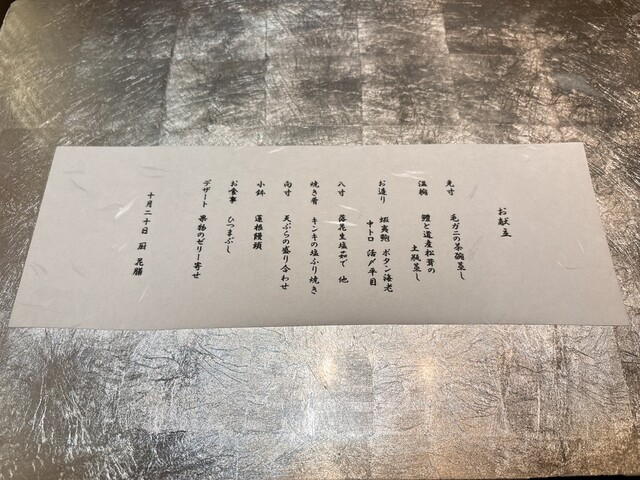 お献立
先寸 毛ガニの茶碗蒸し
温椀 鱧と道産松茸の
土瓶蒸し
お造り 蝦夷鮑 ボタン海老
中トロ 活〆平目
八寸 落花生塩茹で 他
焼き肴 キンキの塩ふり焼き
向寸 天ぷらの盛り合わせ
小鉢 蓮根饅頭
お食事 ひつまぶし
デザート 果物のゼリー寄せ
十月二十日 厨 晃膳